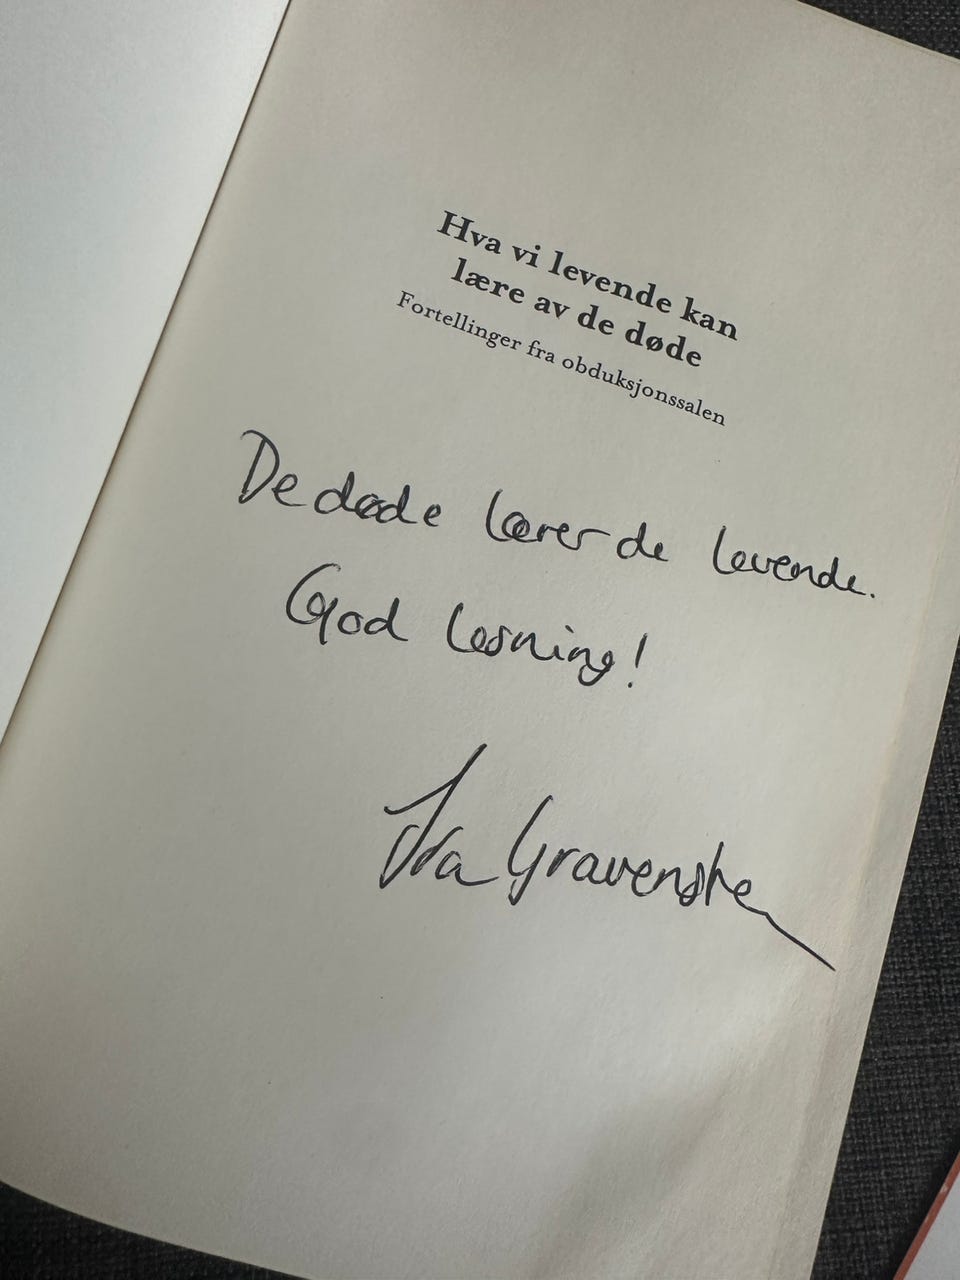 Hva vi levende kan
lære av de døde
Fortellinger fra obduksjonssalen
De døde lærer de levende.
God lesning!
Gravenste